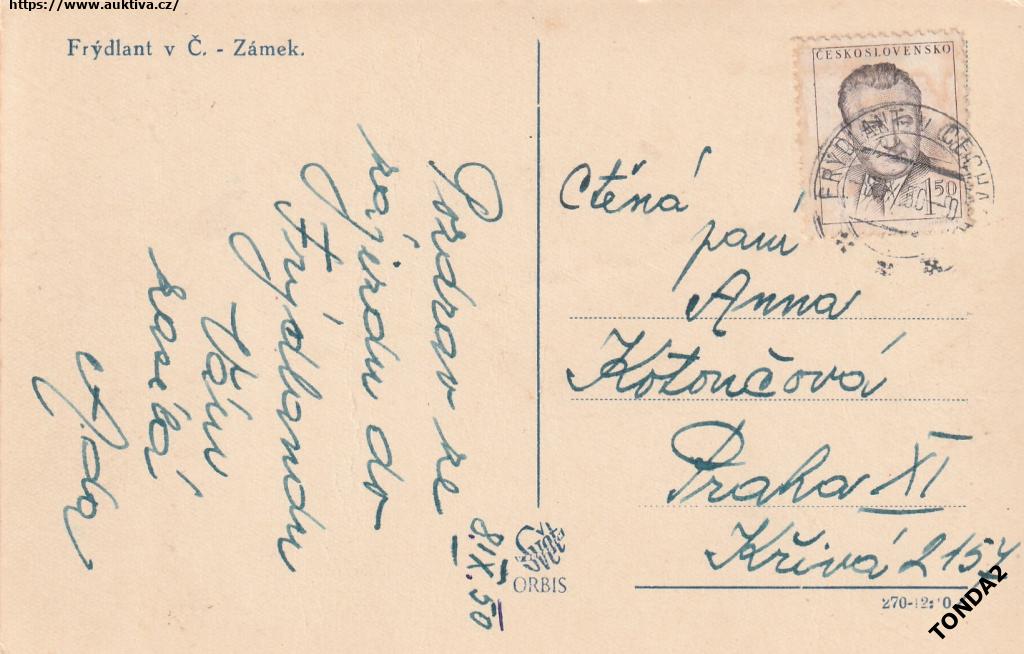 https://www.auktiva.cz/
Frýdlant v Č. - Zámek.
Pozdrav ze
zájezdu do
Frýdlandu
Vám
zasílá
8.IX.50
ČESKOSLOVENSKO
1.50
FRÝDLANT v ČECHÁCH
Ctěná
paní
Anna
Kotončová
Praha XI
Křivá 2154
ORBIS
TONDA2